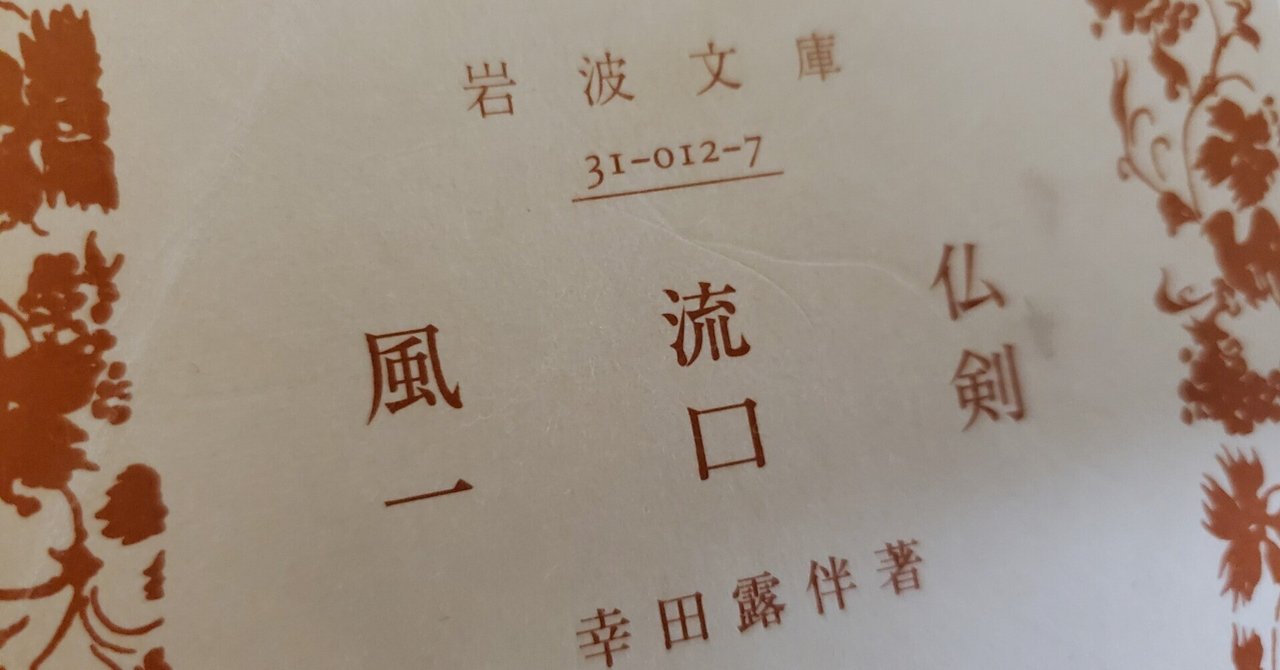 岩波文庫
31-012-7
風流仏
一口剣
幸田露伴著